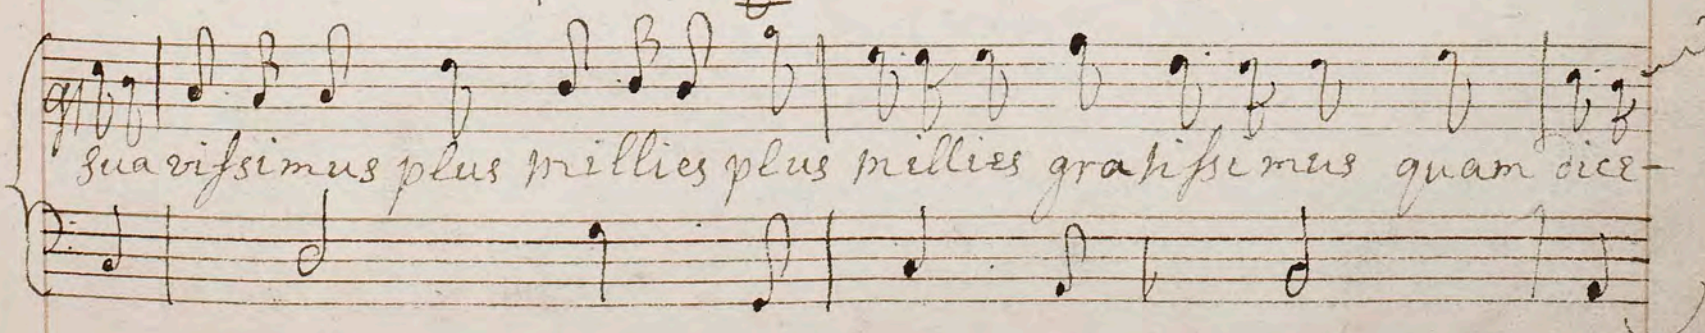 suaviſsimus plus millies plus millies gratiſsimus quam dice-